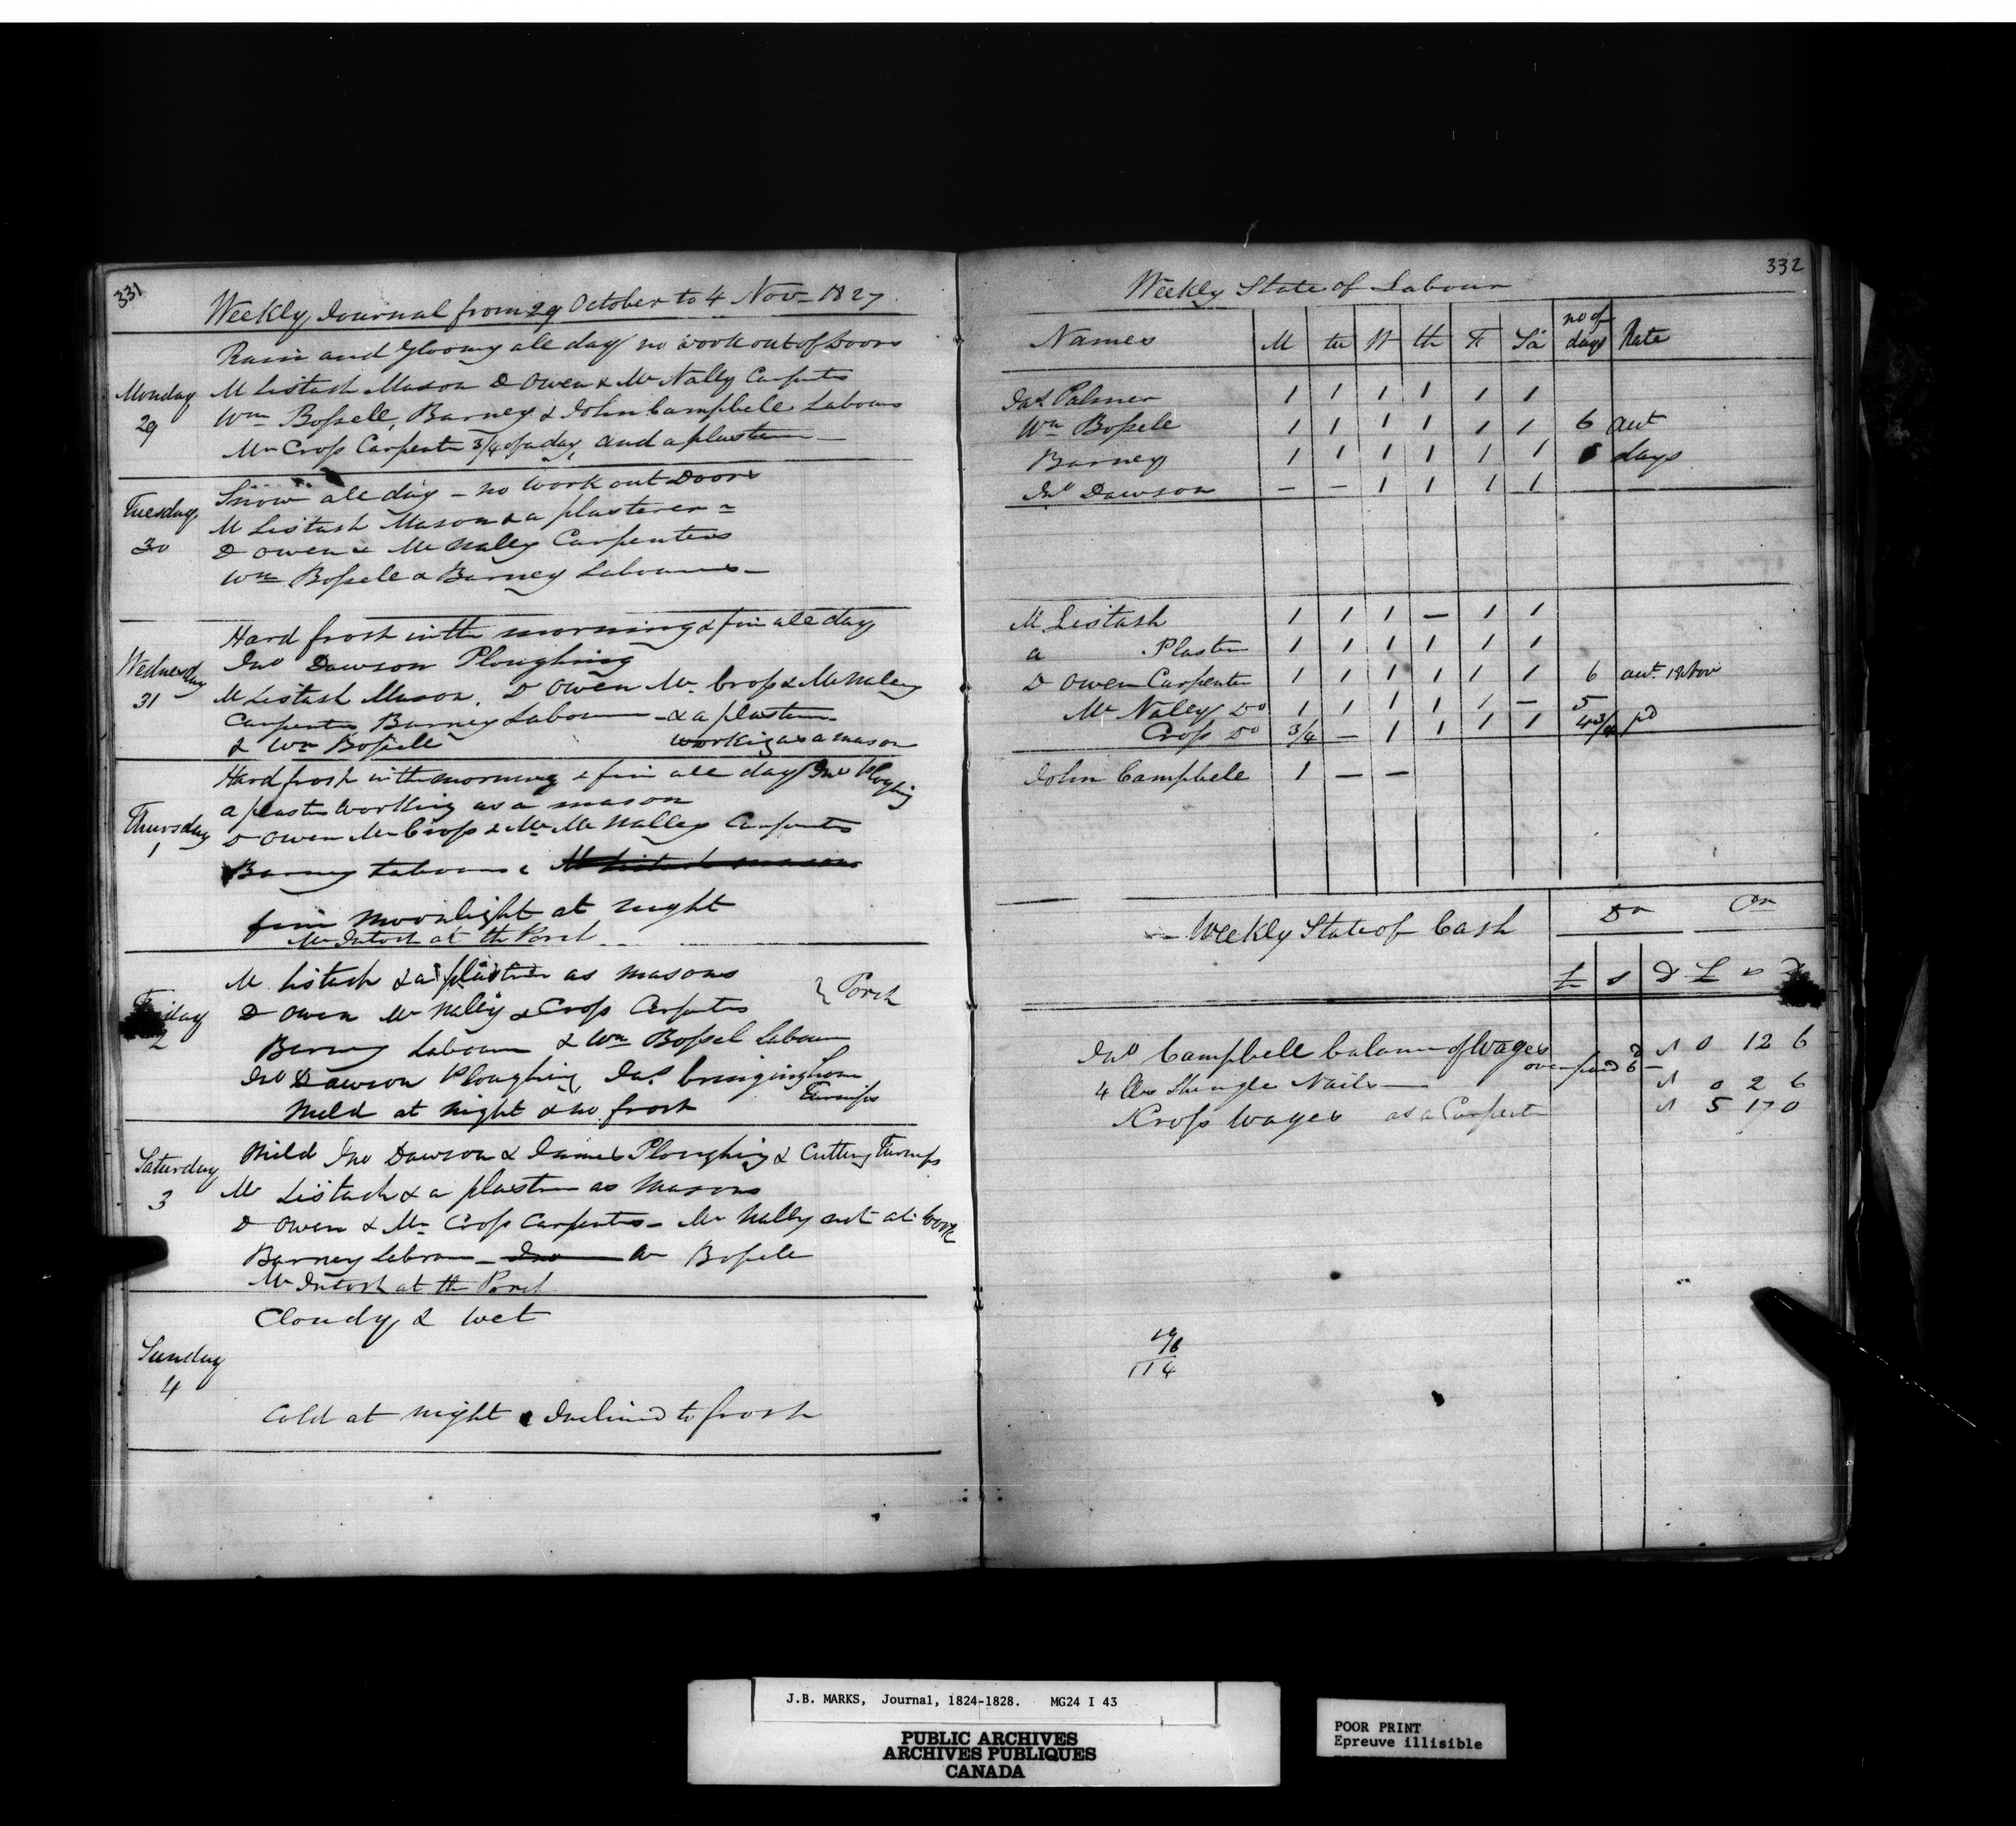 331
Weekly Journal from 29 October to 4 Nov 1827
Monday
29
Rain and gloomy all day no work out of Doors
M Listash Mason D Owen & Mc Nally Carpentrs
Wm Bossell, Barney & John Campbell Labours
Mr Cross Carpentr 3/4 of a day, and a plastern
Tuesday
30
Snow all day - no work out Doors
M Listash Mason & a plasterer
D Owen & Mc Nally Carpenters
Wm Bossell & Barney Labourers
Wednesday
31
Hard frost in the morning & fine all day
Jno Dawson Ploughing
M Listash Mason. D Owen Mr Cross & McNaley
Carpentrs Barney Labourer - & a plastern
& Wm Bossell working as a mason
Thursday
1
Hard frost in the morning & fine all day Jno Ploughing
a plastr working as a mason
D Owen Mr Cross & Mr Mc Nalley Carpentrs
Barney Labourer & M Listash mason
fine moonlight at night
Mc Intosh at the Porch
Friday
2
M Listash & a plastern as masons
D Owen Mc Nally & Cross Carpentrs } Porch
Barney Labourer & Wm Bossel Labourer
Jno Dawson Ploughing, Jas bringing home
Turnips
Mild at night & no frost
Saturday
3
Mild Jno Dawson & James Ploughing & Cutting Turnips
M Listash & a plastern as Masons
D Owen & Mr Cross Carpentrs - Mc Nally not at work
Barney Labourer - Jno Wm Bossell
Mc Intosh at the Porch
Sunday
4
Cloudy & wet
Cold at night & Inclined to frost
332
Weekly State of Labour
Names M tu W th F Sa no of days Rate
Jas Palmer 1 1 1 1 1 1
Wm Bossell 1 1 1 1 1 1 6 aut
Barney 1 1 1 1 1 1 days
Jno Dawson - - 1 1 1 1
M Listash 1 1 1 - 1 1
a Plastern 1 1 1 1 1 1
D Owen Carpenter 1 1 1 1 1 1 6
Mc Nalley Do 1 1 1 1 1 - 5
Cross Do 3/4 - 1 1 1 1 4 3/4 pd
John Campbell 1 - -
Weekly State of Cash Dr Cr
£ s D £ s D
Jno Campbell balance of Wages 0 12 6
over paid 6
4 lbs Shingle Nails 0 2 6
Cross wages as a Carpentr 5 17 0
19
6
114
J.B. MARKS, Journal, 1824-1828. MG24 I 43
PUBLIC ARCHIVES
ARCHIVES PUBLIQUES
CANADA
POOR PRINT
Epreuve illisible